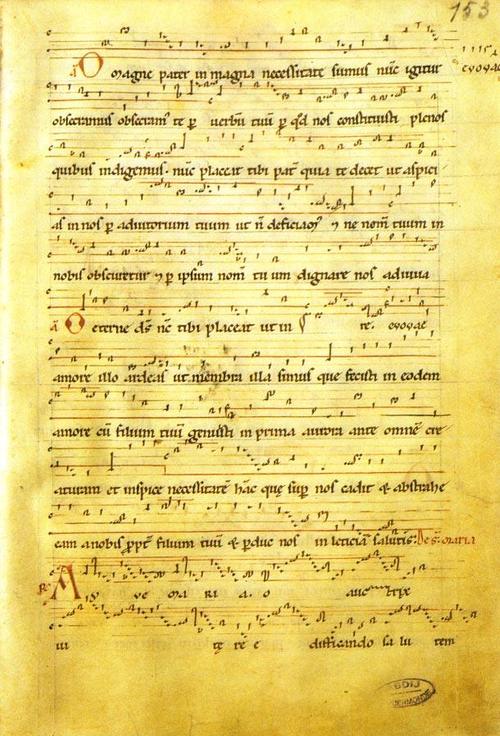 153
O magne pater in magna necessitate sumus nūc igitur
euouae
obsecramus obsecram' te p uerbū tuū p qd nos constituisti plenos
quibus indigemus. nūc placeat tibi pat' quia te decet ut aspici
as in nos p adiutorium tuum ut n̄ deficiam' ⁊ ne nom̄ tuum in
nobis obscuretur ⁊ p ipsum nom̄ tuum dignare nos adiuua
O eterne ds̄ nc̄ tibi placeat ut in te. euouae
amore illo ardeas ut membra illa simus que fecisti in eodem
amore cū filium tuū genuisti in prima aurora ante omnē cre
aturam et inspice necessitatē hāc que sup nos cadit & abstrahe
eam a nobis ppt' filium tuū & pduc nos in leticiā salutis: De s. maria
R. A ue ma ri a. o auctrix
ui te re e dificando sa lu tem